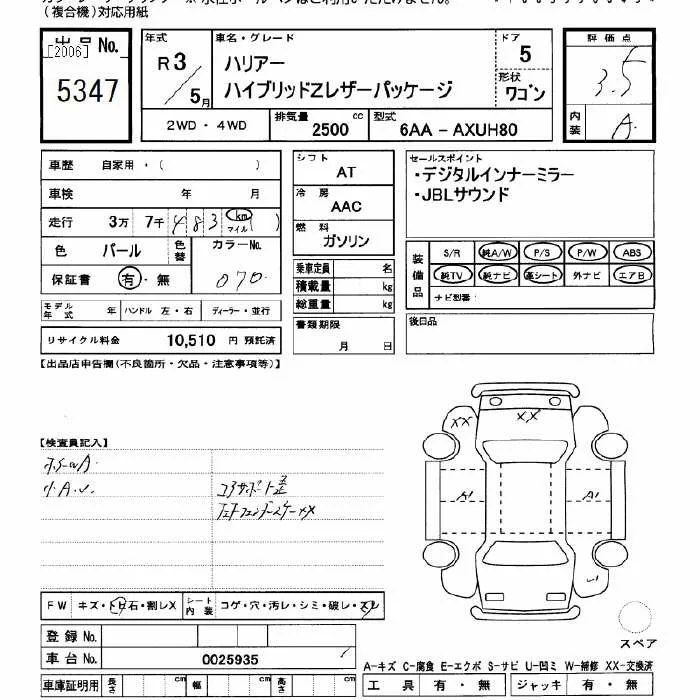 (複合機)対応用紙
出品No.
[2006]
5347
年式
R3/5月
車名・グレード
ハリアー
ハイブリッドZレザーパッケージ
ドア
5
形状
ワゴン
評価点
3.5
内装
A
2WD・4WD
排気量 2500 cc
型式 6AA-AXUH80
車歴 自家用・( )
車検 年 月
走行 3万 7千 483 km マイル ( )
色 パール 色替 カラーNo.
保証書 有・無 070
モデル年式 年 ハンドル 左・右 ディーラー・並行
リサイクル料金 10,510 円 預託済
シフト AT
冷房 AAC
燃料 ガソリン
乗車定員 名
積載量 kg
総重量 kg
書類期限
月 日
セールスポイント
・デジタルインナーミラー
・JBLサウンド
装備品
S/R 純A/W P/S P/W ABS
純TV 純ナビ 革シート 外ナビ エアB
ナビ型番:
後日品
【出品店申告欄(不良箇所・欠品・注意事項等)】
【検査員記入】
コアサポート歪
XX XX
A1 A1
FW キズ・トビ石・割レX
シート内装 コゲ・穴・汚レ・シミ・破レ・スレ
登録No.
車台No. 0025935
車庫証明用 長さ cm 幅 cm 高さ cm
スペア
A-キズ C-腐食 E-エクボ S-サビ U-凹ミ W-補修 XX-交換済
工具 有・無 ジャッキ 有・無